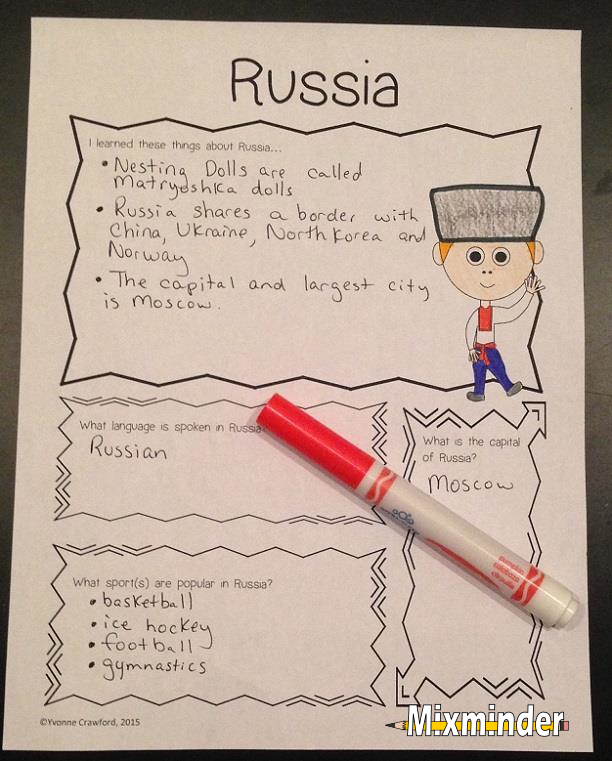 Russia
I learned these things about Russia...
• Nesting Dolls are called
Matryoshka dolls
• Russia shares a border with
China, Ukraine, North Korea and
Norway
• The capital and largest city
is Moscow.
What language is spoken in Russia
Russian
What is the capital
of Russia?
Moscow
What sport(s) are popular in Russia?
• basketball
• ice hockey
• football
• gymnastics
©Yvonne Crawford, 2015
Mixminder